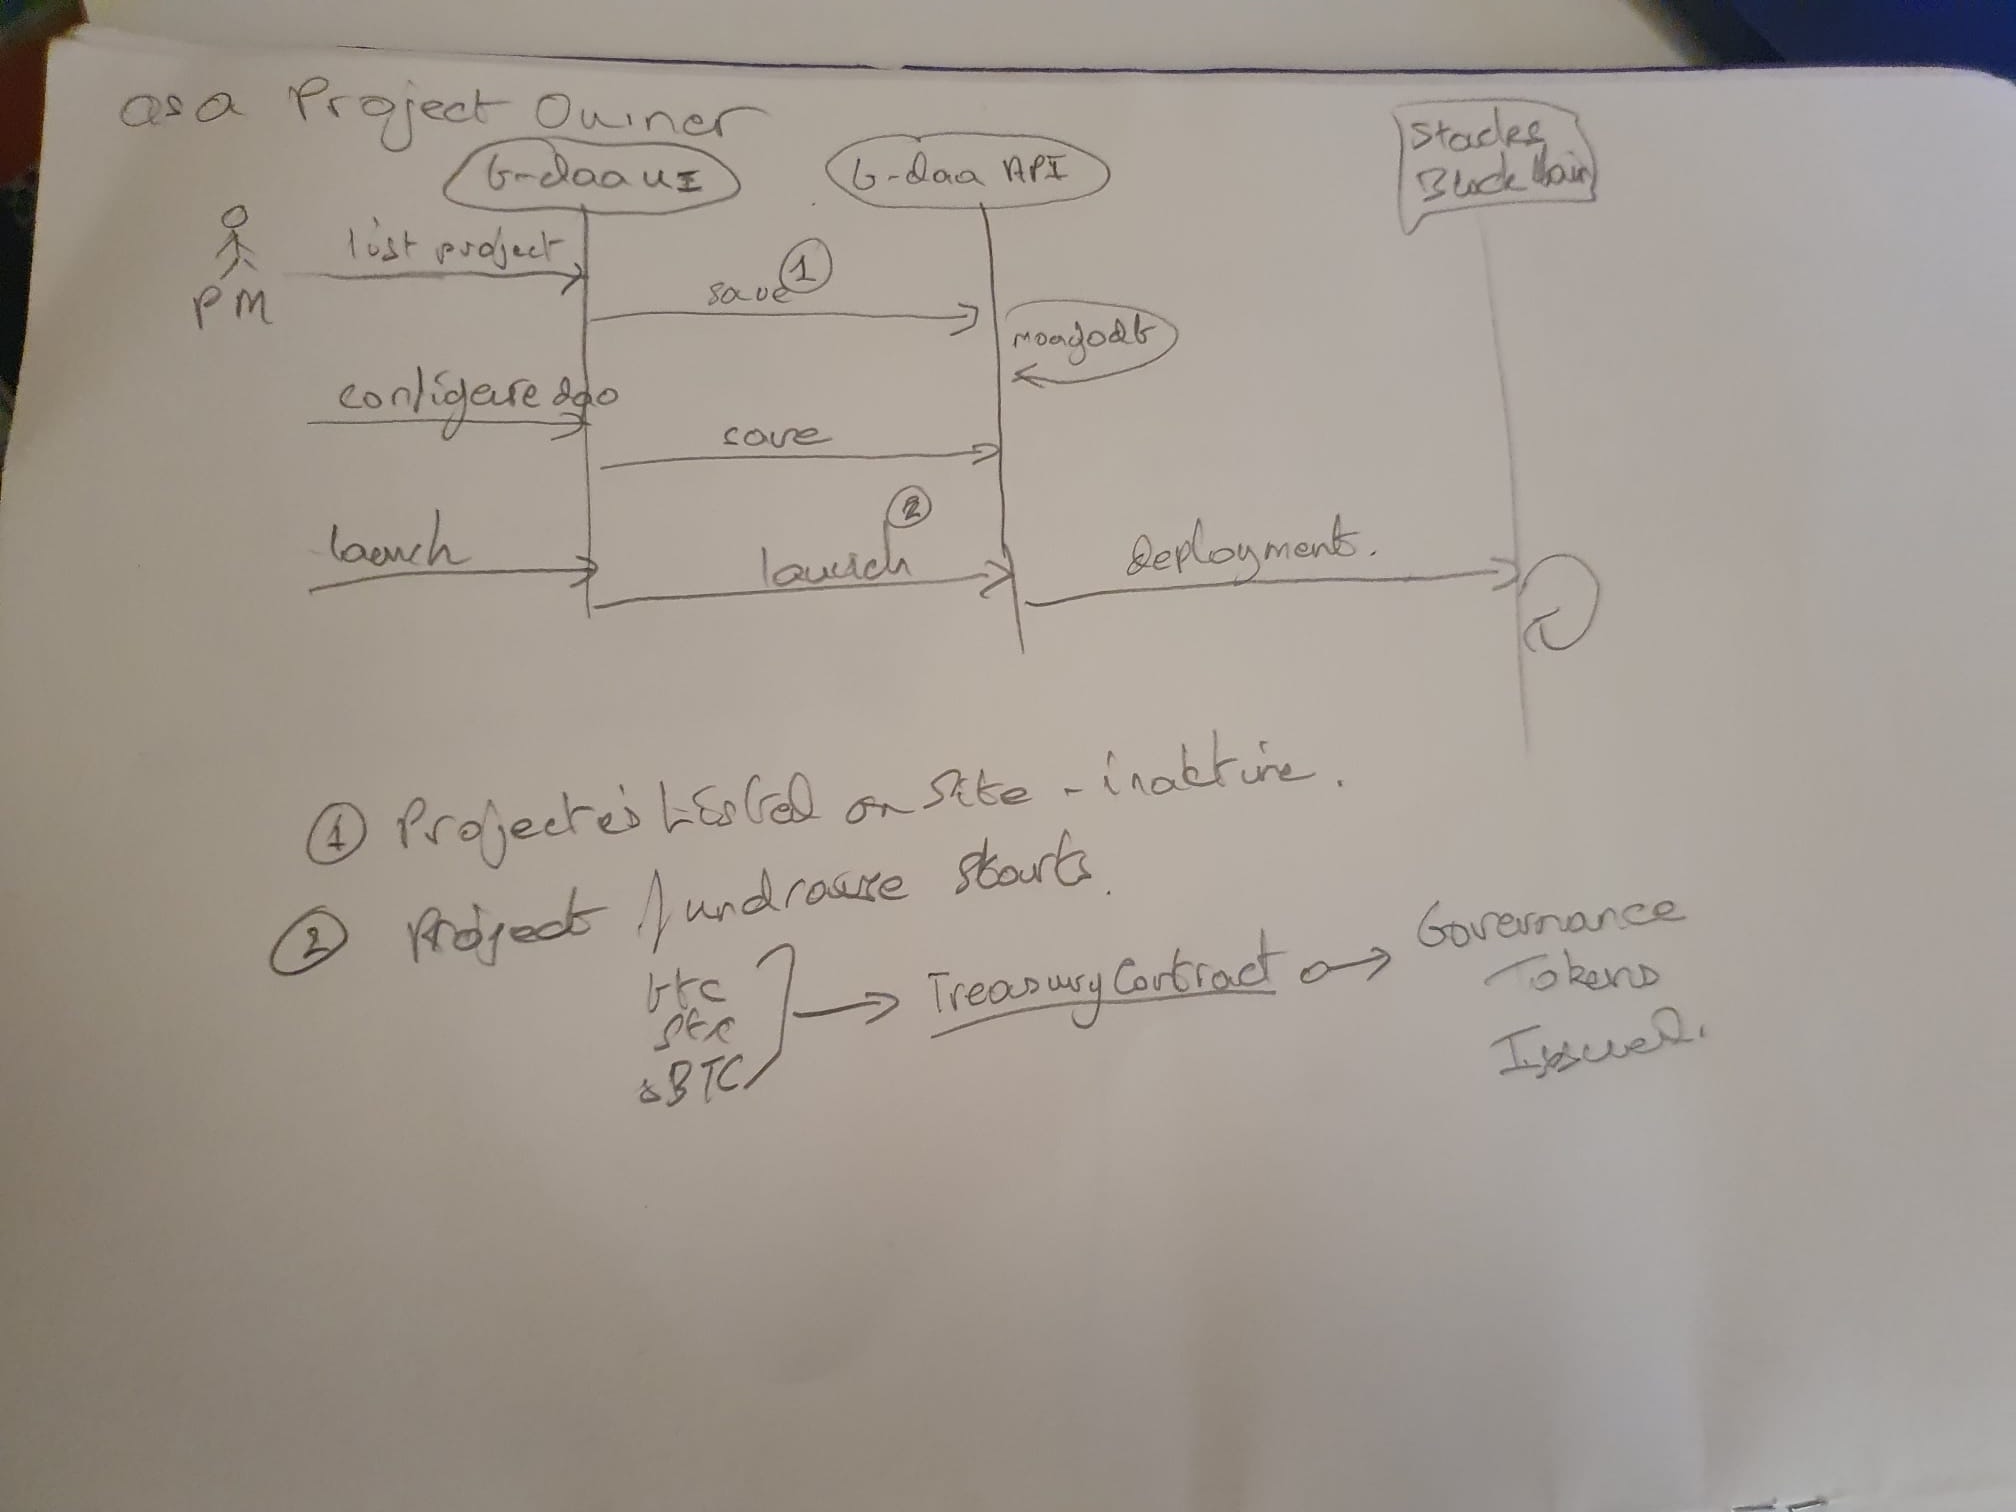 as a Project Owner
b-daa UI
b-daa API
Stacks
Blockchain
list project
PM
save ①
mongodb
configure dao
save
②
launch
launch
Deployment.
① Project is Listed on Site - inaktive.
② Project fundraise starts.
btc
stx
sBTC
Treasury Contract
Governance
Tokens
Issued.